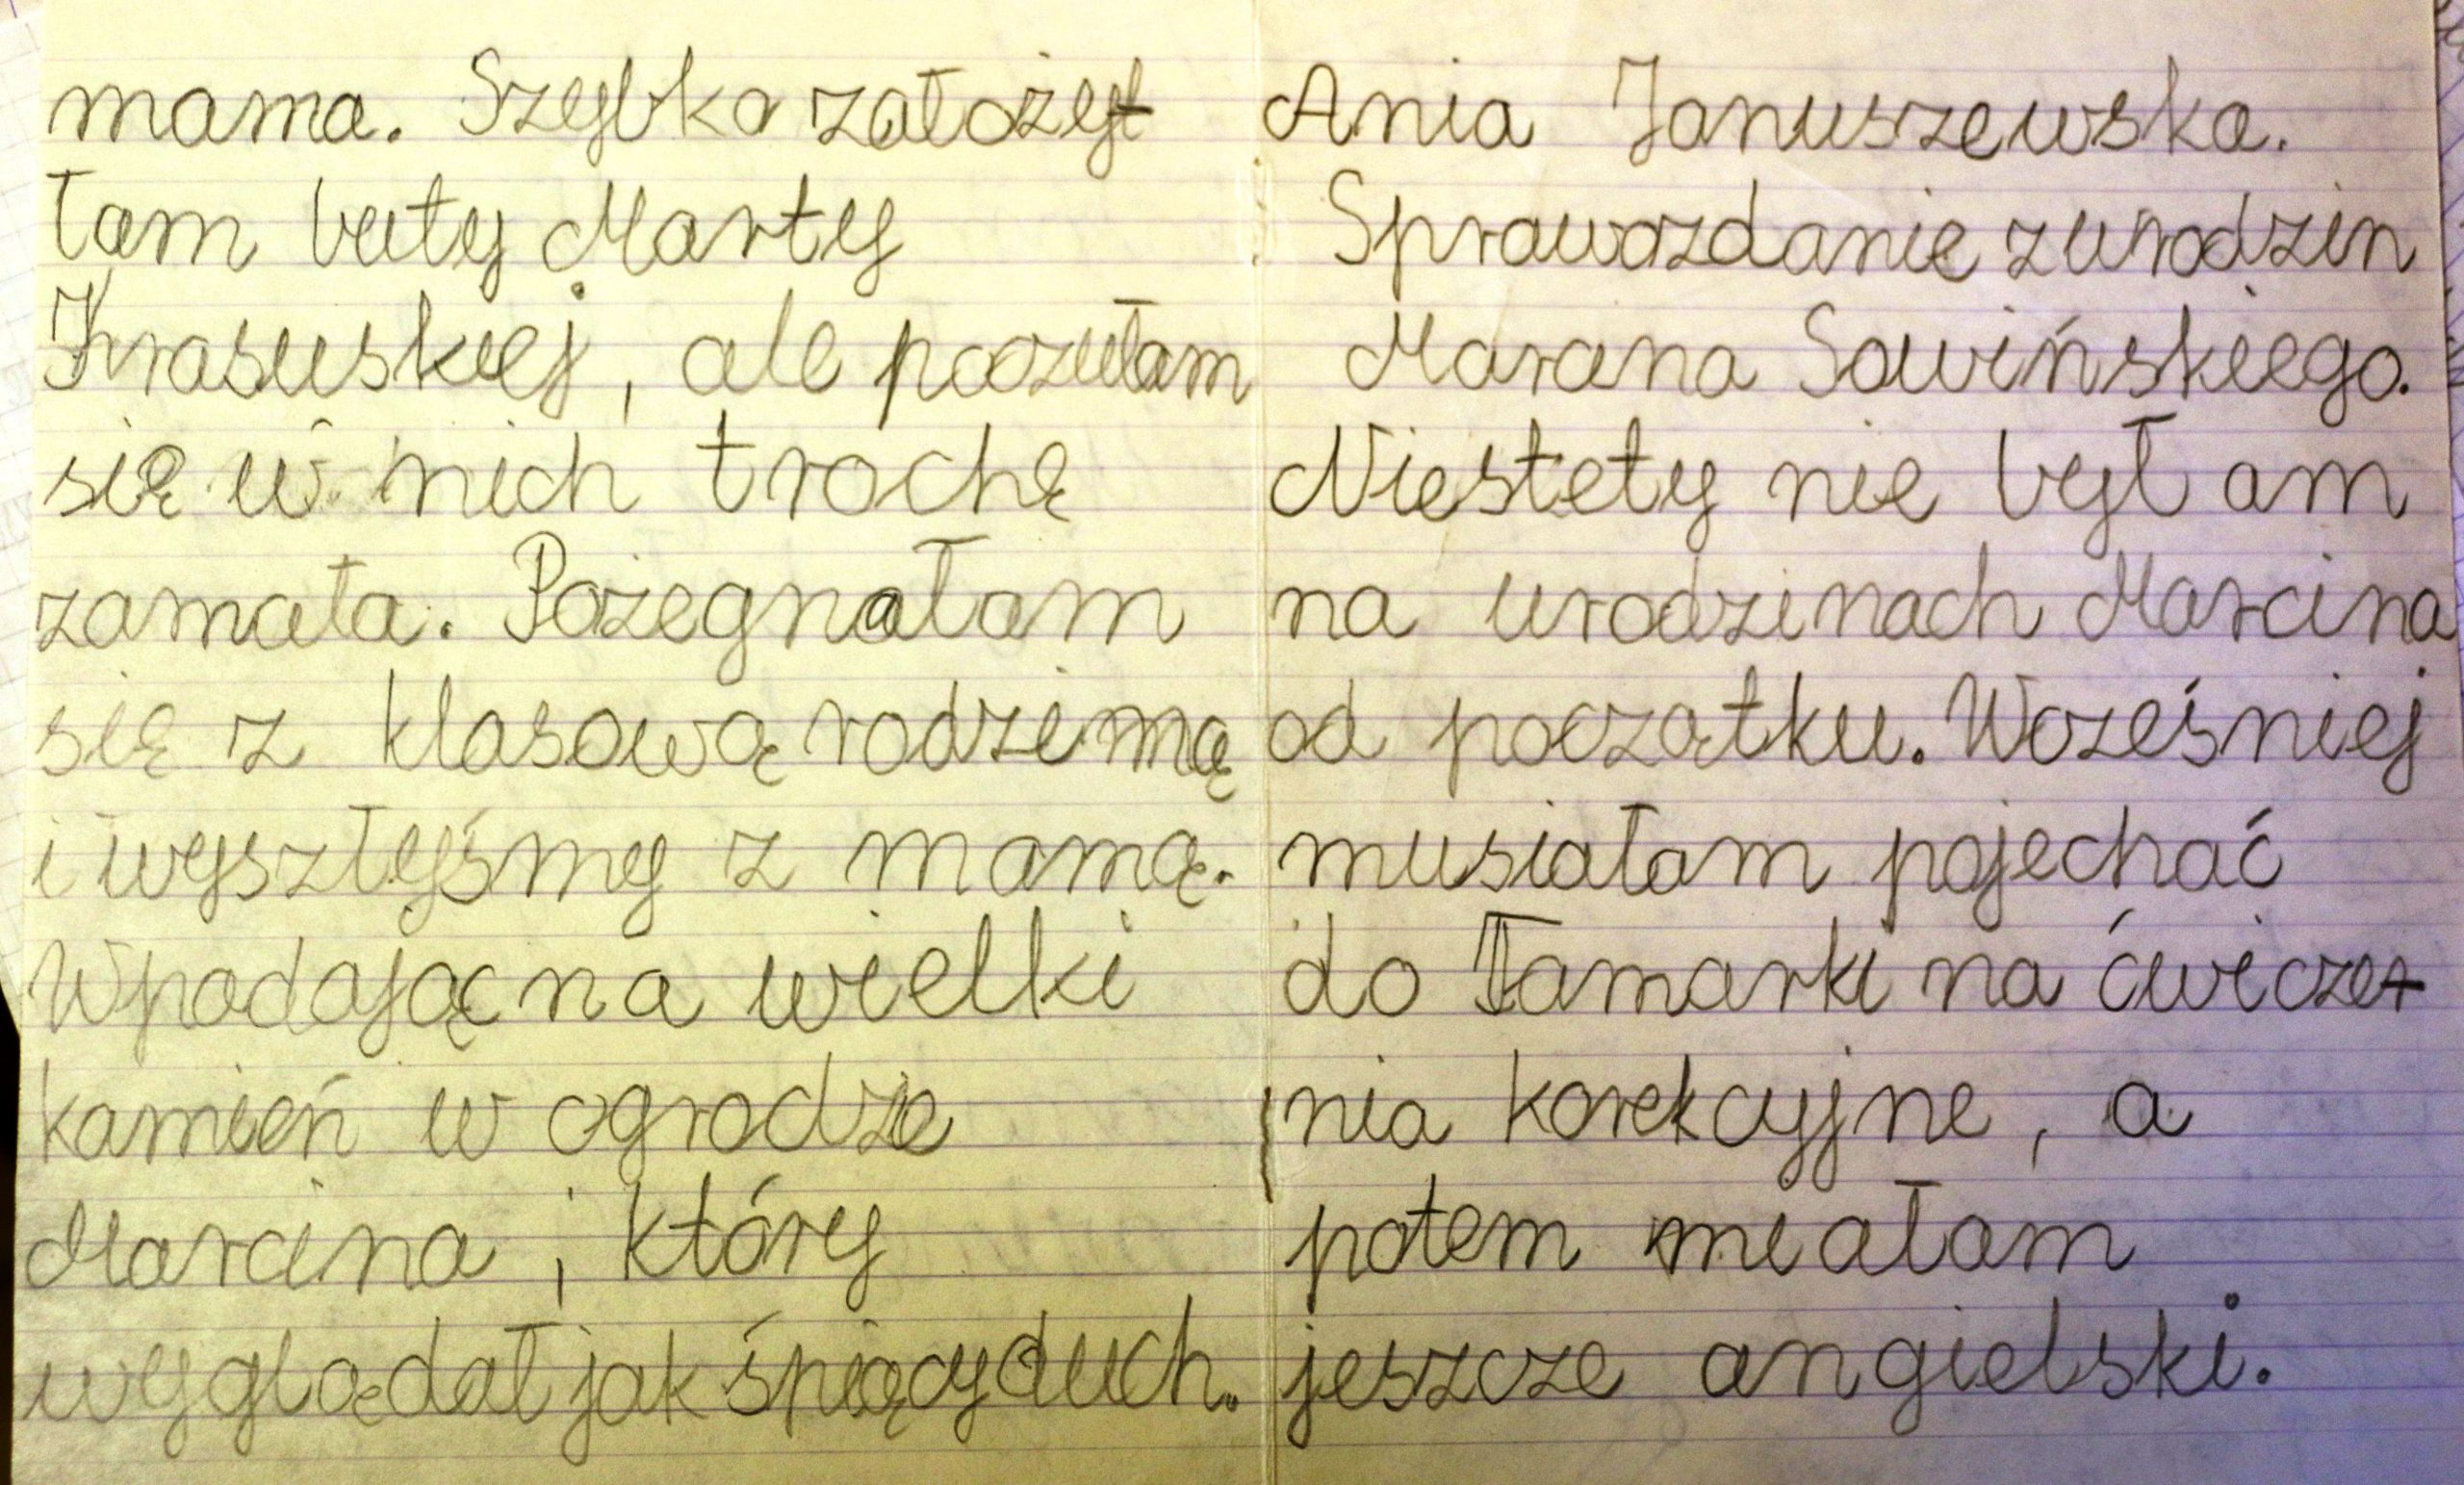 mama. Szybko założy-
łam buty Marty
Krasuskiej, ale poczułam
się w nich trochę
zamała. Pożegnałam
się z klasową rodziną
i wyszłyśmy z mamą.
Wpadając na wielki
kamień w ogrodzie
Marcina, który
wyglądał jak śpiący duch.
Ania Januszewska.
Sprawozdanie z urodzin
Marcina Sawińskiego.
Niestety nie byłam
na urodzinach Marcina
od początku. Wcześniej
musiałam pojechać
do Tamarki na ćwicze-
nia korekcyjne, a
potem miałam
jeszcze angielski.